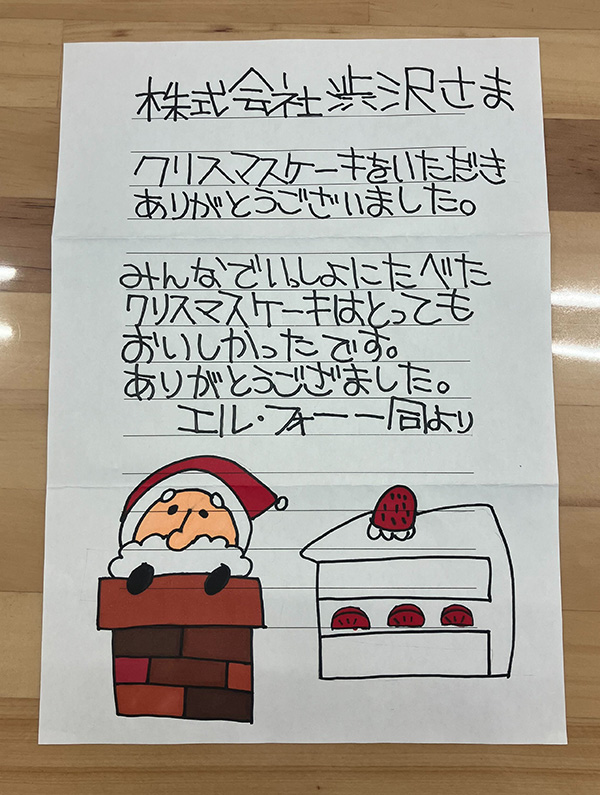 株式会社渋沢さま
クリスマスケーキをいただき
ありがとうございました。
みんなでいっしょにたべた
クリスマスケーキはとっても
おいしかったです。
ありがとうござました。
エル・フォー一同より